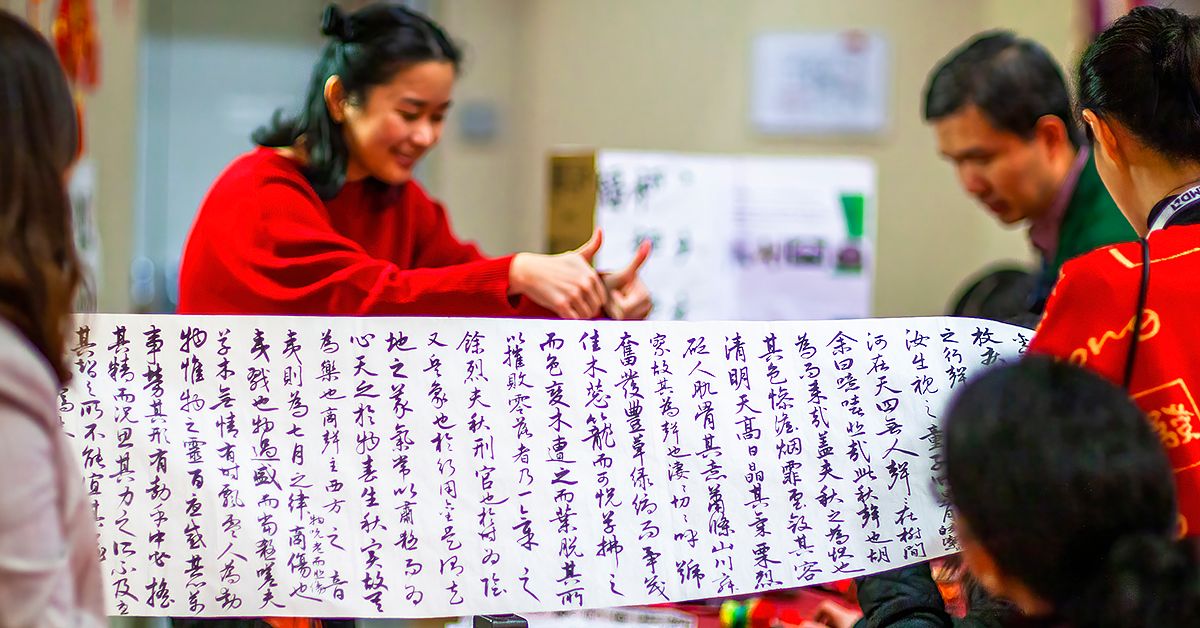 枚
之行聲
汝出視之童子
河在天四無人聲聲在樹間
余曰噫嘻悲哉此秋聲也胡
為為来哉盖夫秋之為狀也
其色惨淡烟霏雲斂其容
清明天高日晶其氣栗烈
砭人肌骨其意蕭條山川寂
寥故其為聲也凄々切々呼號
奮發豐草緑縟而爭茂
佳木葱籠而可悦草拂之
而色變木遭之而葉脱其所
以摧敗零落者乃一氣之
餘烈夫秋刑官也於時為陰
又兵象也於行用金是謂天
地之義氣常以肅殺而為
心天之於物春生秋實故其
為樂也商聲主西方之音
夷則為七月之律商傷也
物既老而悲傷
夷戮也物過盛而當殺嗟夫
草木無情有時飄零人為動
物惟物之靈百憂感其萬
事勞其形有動乎中必搖
其精而况思其力之所不及憂
其智之所不能宜其
發